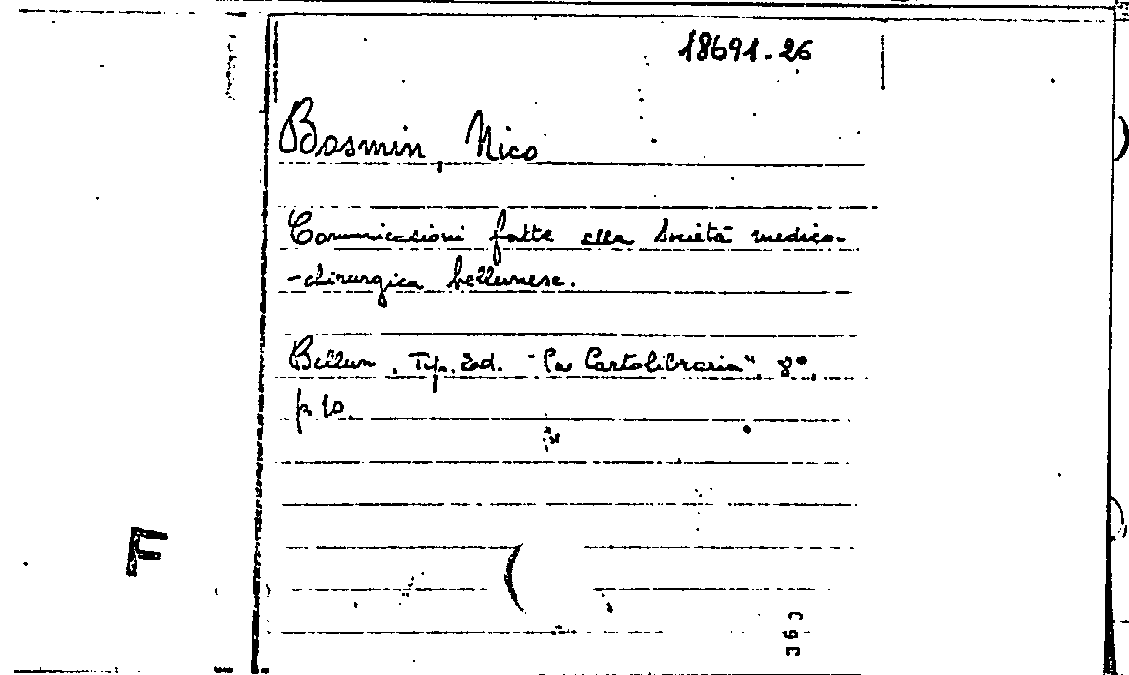 18691.26
Bosmin, Nico
Comunicazioni fatte alla Società medico-
-chirurgica bellunese.
Bellun, Tip. Ed. "La Cartolibraria", 8°,
p 10.
F